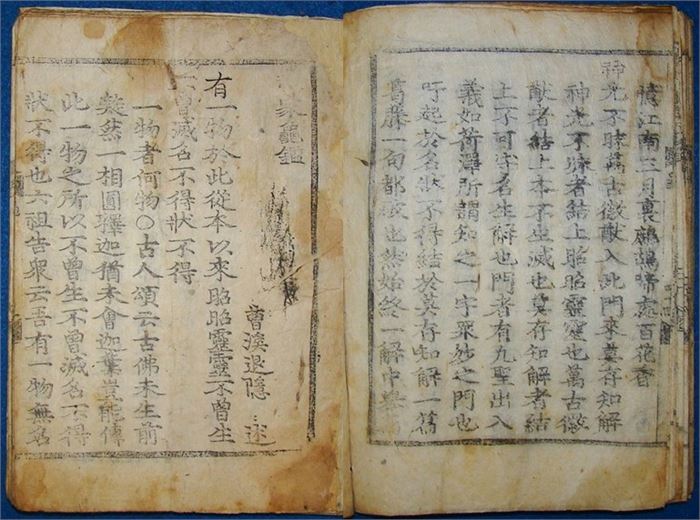 憶江南三月裏鷓鴣啼處百花香
神光不昧萬古徽猷入此門來莫存知解
神光不昧者結上昭昭靈靈也萬古徽
猷者結上本不生滅也莫存知解者結
上不可守名生解也門者有凡聖出入
義如荷澤所謂知之一字衆妙之門也
吁起於名狀不得結於莫存知解一篇
葛藤一句都破也然始終一解中擧
家龜鑑
曹溪退隱 述
有一物於此從本以來昭昭靈靈不曾生
曾滅名不得狀不得
一物者何物〇古人頌云古佛未生前
凝然一相圓釋迦猶未會迦葉豈能傳
此一物之所以不曾生不曾滅名不得
狀不得也六祖告衆云吾有一物無名